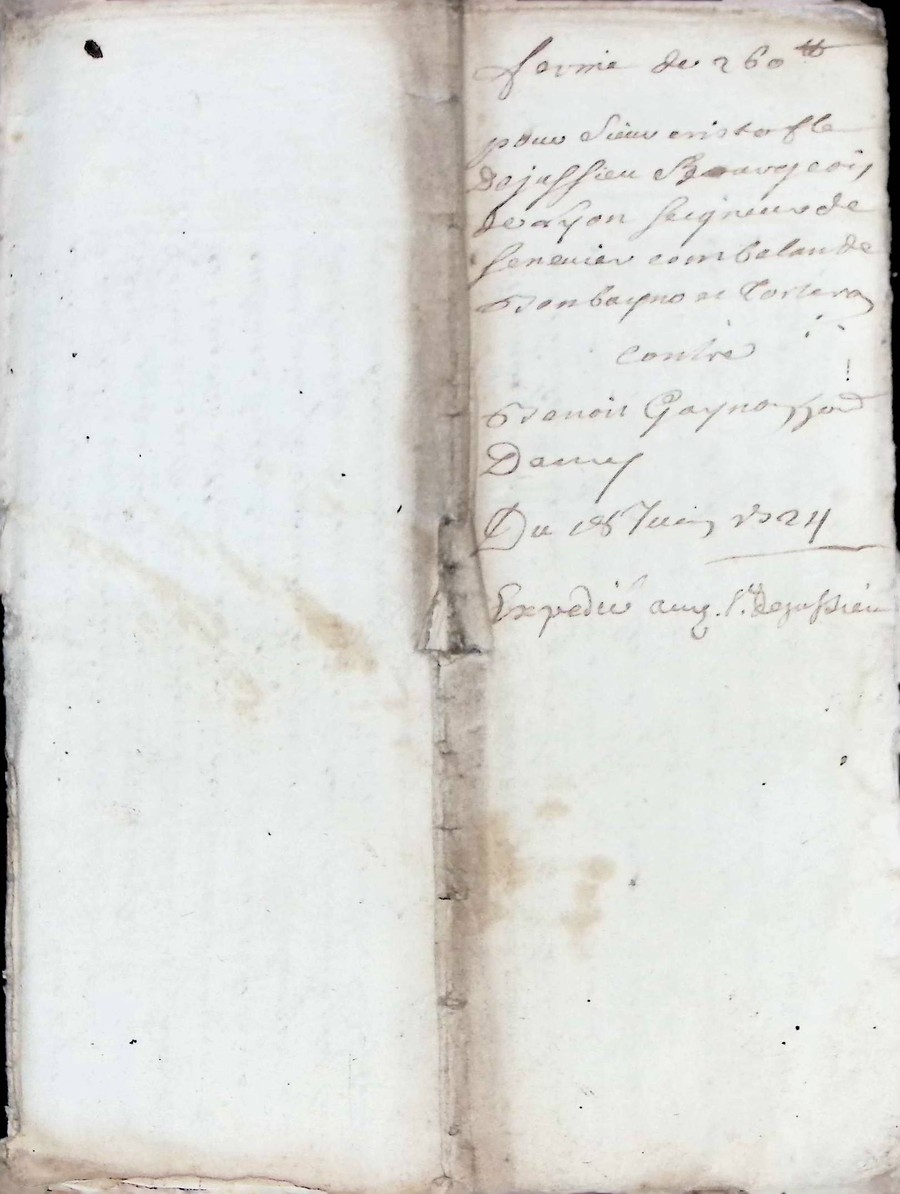 ferme de 260 ₶
pour sieur cristofle
Dejussieu Bourgeois
de Lyon seigneur de
senevier combelande
Bonbayno et Tortera
contre
Benoit Gaynayzon
Du 18 Juin 1724
Expedié audz. Sr. dejussieu